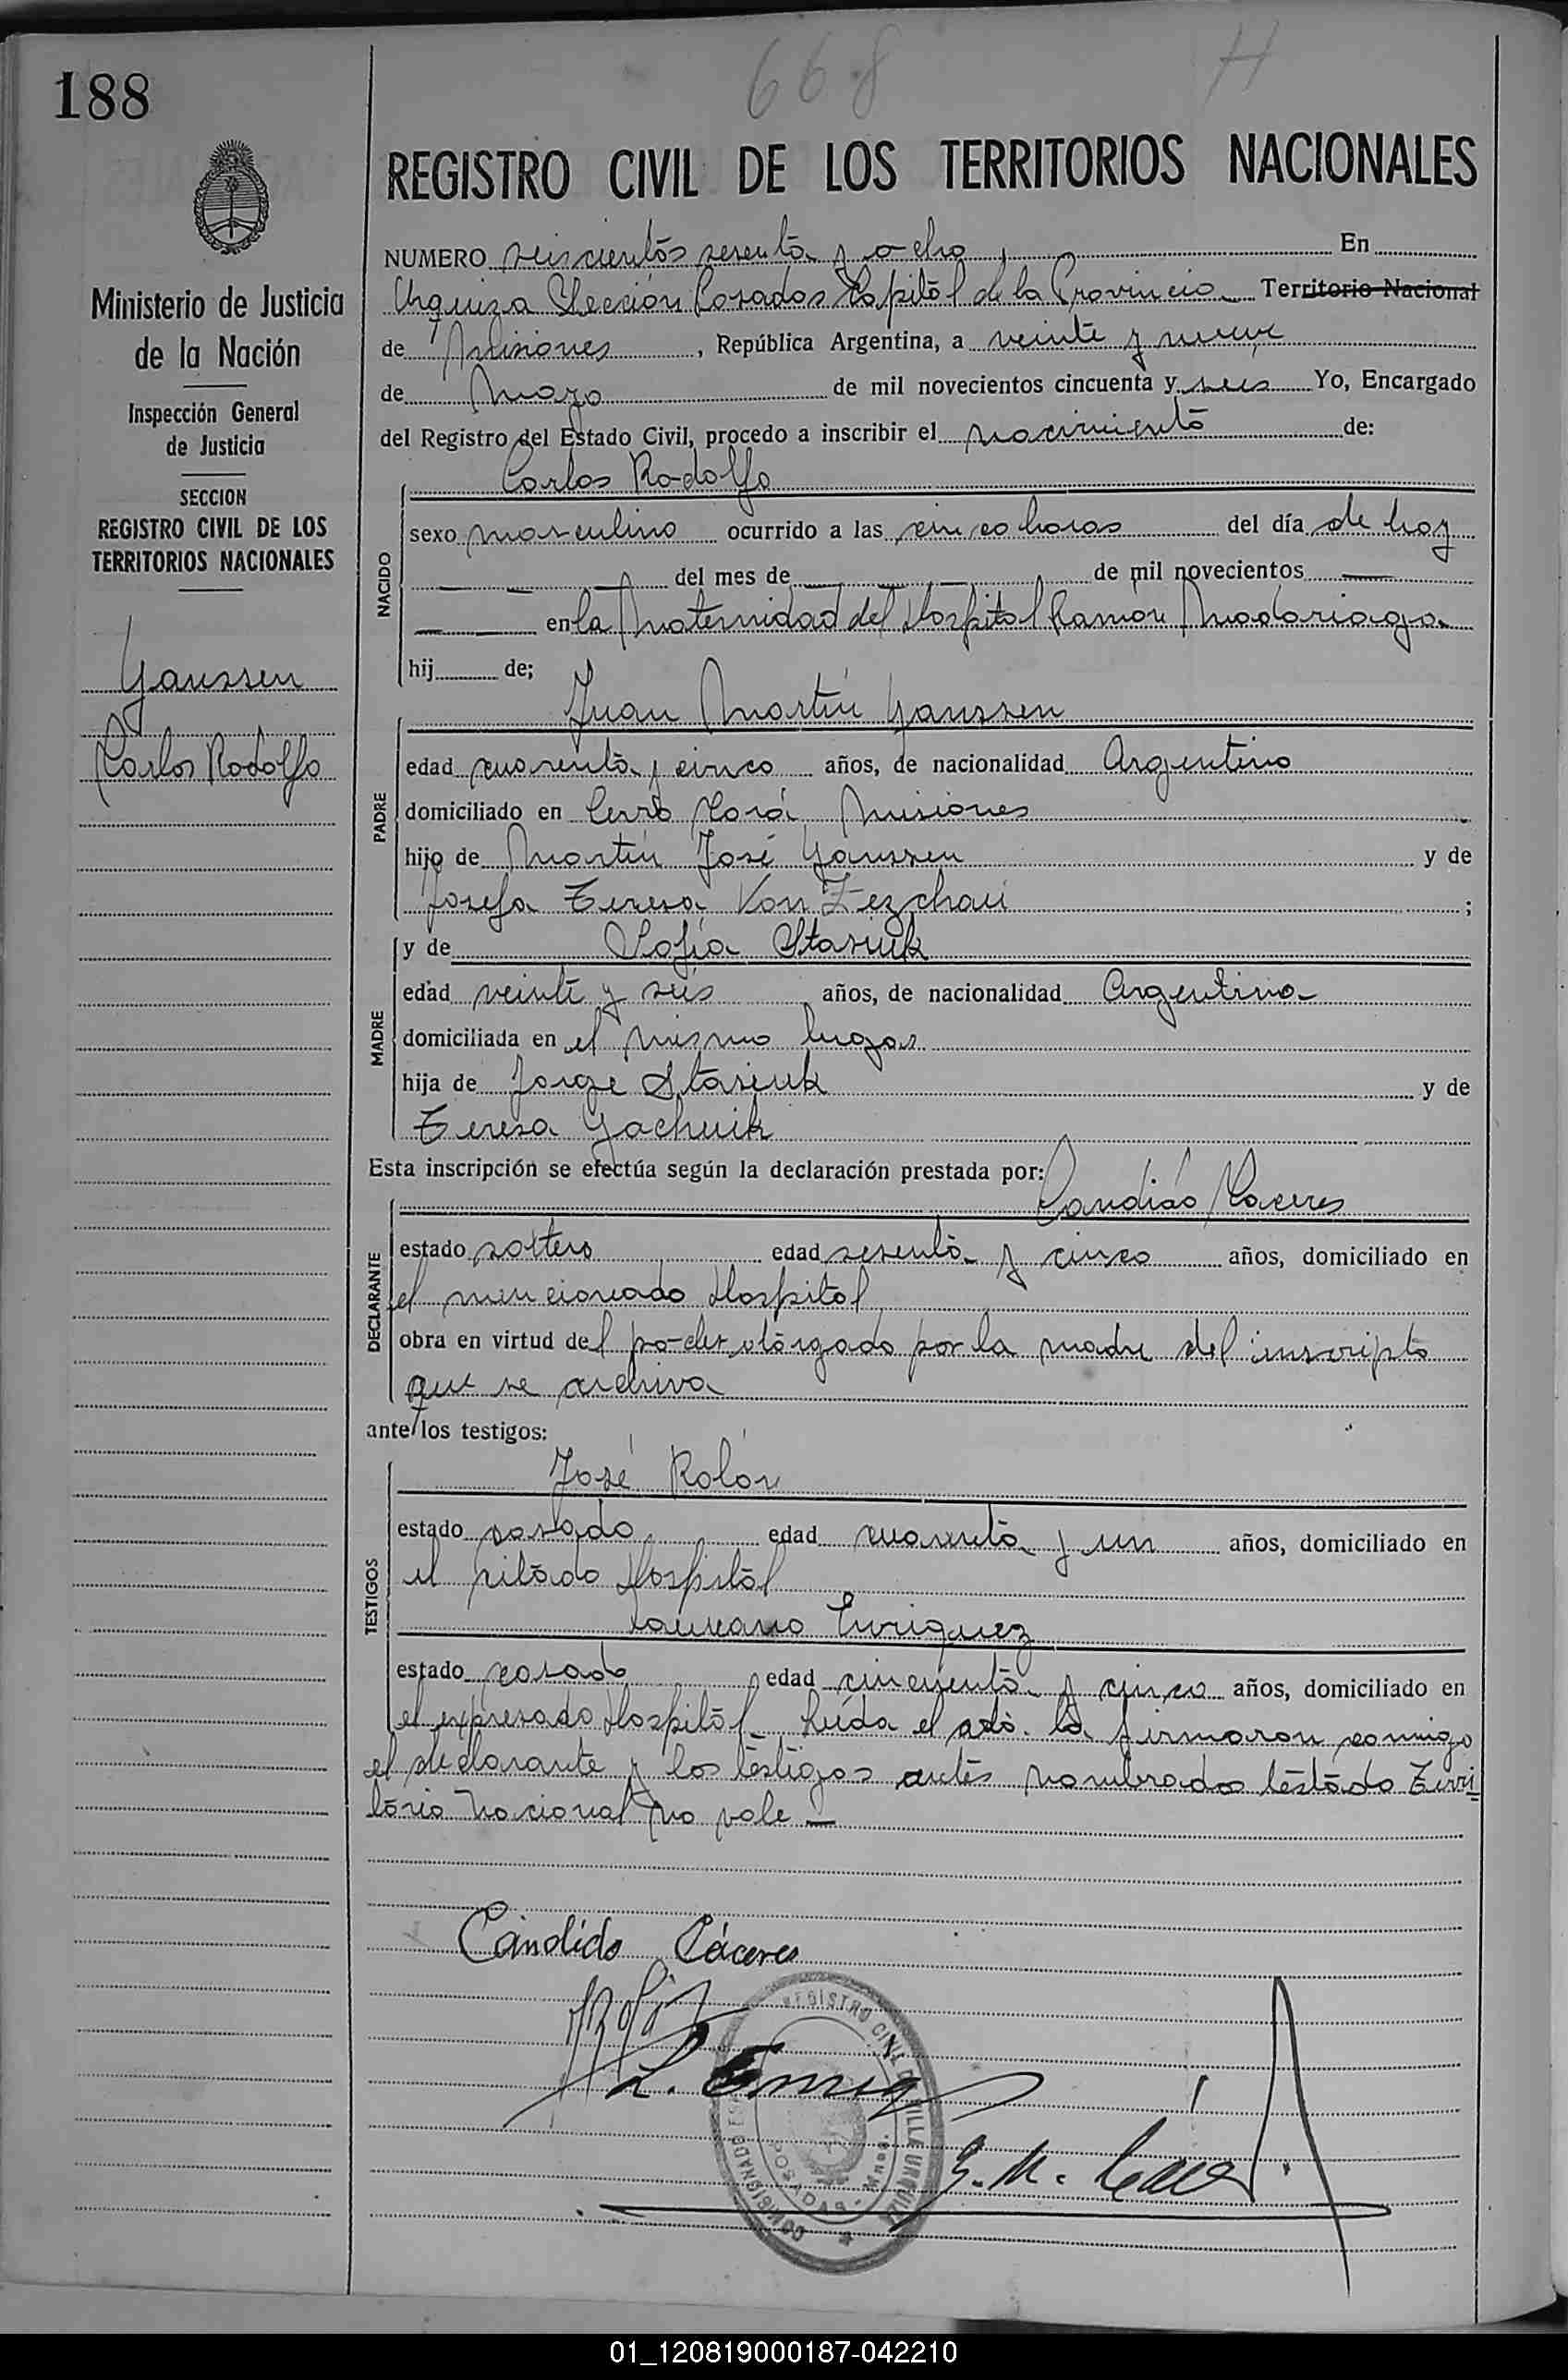 668 H
188
REGISTRO CIVIL DE LOS TERRITORIOS NACIONALES
Ministerio de Justicia
de la Nación
Inspección General
de Justicia
SECCION
REGISTRO CIVIL DE LOS
TERRITORIOS NACIONALES
Yanssen
Carlos Rodolfo
NUMERO seiscientos sesenta y ocho En
Urquiza Sección Posadas Capital de la Provincia Territorio Nacional
de Misiones, República Argentina, a veinte y nueve
de Mayo de mil novecientos cincuenta y seis Yo, Encargado
del Registro del Estado Civil, procedo a inscribir el nacimiento de:
NACIDO
Carlos Rodolfo
sexo masculino ocurrido a las cinco horas del día de hoy
— — — del mes de — — de mil novecientos —
— — en la Maternidad del Hospital Ramón Madariaga
hij de;
PADRE
Juan Martín Yanssen
edad cuarenta y cinco años, de nacionalidad Argentino
domiciliado en Cerro Corá Misiones
hijo de Martín José Yanssen y de
Josefa Teresa Von Zezchau ;
MADRE
y de Sofía Stasiuk
edad veinte y seis años, de nacionalidad Argentina
domiciliada en el mismo lugar
hija de Jorge Stasiuk y de
Teresa Yachuik
Esta inscripción se efectúa según la declaración prestada por:
DECLARANTE
Candido Caceres
estado soltero edad sesenta y cinco años, domiciliado en
el mencionado Hospital
obra en virtud del poder otorgado por la madre del inscripto
que se archiva
ante los testigos:
TESTIGOS
José Rolón
estado casado edad cuarenta y un años, domiciliado en
el citado Hospital
Laureano Enriquez
estado casado edad cincuenta y cinco años, domiciliado en
el expresado Hospital — Leída el acta la firmaron conmigo
el declarante y los testigos antes nombrados testado Terri
torio Nacional no vale —
Cándido Cáceres
REGISTRO CIVIL VILLA URQUIZA
POSADAS - Mnes.
01_120819000187-042210